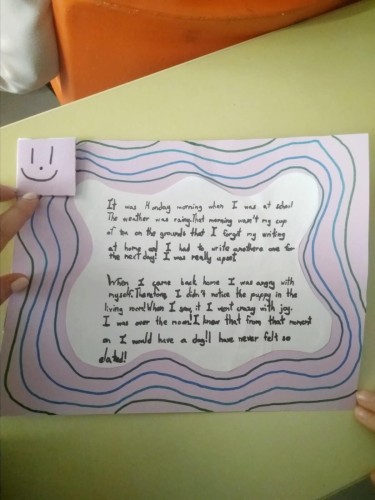 It was Monday morning when I was at school
The weather was rainy.That morning wasn't my cup
of tea on the grounds that I forgot my writing
at home and I had to write anothere one for
the next day! I was really upset
When I came back home I was angry with
myself.Therefore, I didn't notice the puppy in the
living room!When I saw it I went crazy with joy.
I was over the moon!I knew that from that moment
on I would have a dog!I have never felt so
elated!